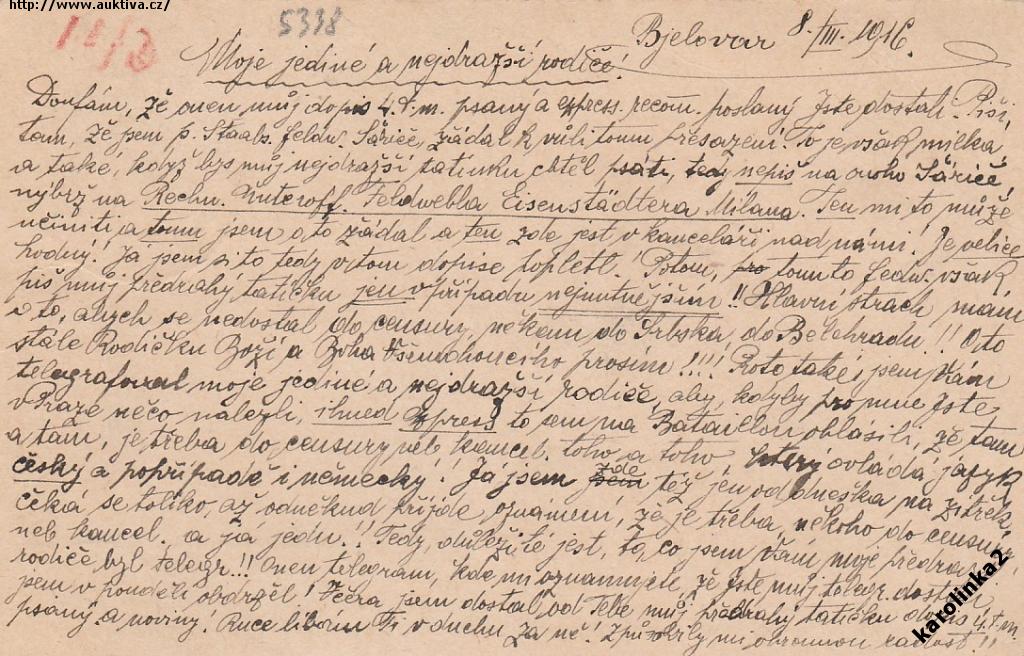 http://www.auktiva.cz/
5338
Bjelovar 8./III. 1916.
Moje jediné a nejdražší rodiče!
Doufám, že onen můj dopis 4. t. m. psaný a express. recom. poslaný Jste dostali. Píši,
tam, že jsem p. Staabs. feldw. žádal k vůli tomu přesazení. To je však mílka
a také, když bys můj nejdražší tatínku chtěl psáti, tedy nepiš na onoho
nýbrž na Rechn. Unteroff. Feldwebla Eisenstädtera Milana. Ten mi to může
učiniti a tomu jsem o to žádal a ten zde jest v kanceláři nad námi! Je velice
hodný! Já jsem si to tedy v tom dopise popletl! Potom, tomuto feldw. však
piš můj předrahý tatíčku jen v případu nejnutnějším!! Hlavní strach mám
o to, abych se nedostal do censury někam do Srbska, do Bělehradu!! O to
stále Rodičku Boží a Boha Všemohoucího prosím!!!! Proto také i jsem Vám
telegrafoval moje jediné a nejdražší rodiče, aby, kdyby pro mne Jste
v Praze něco nalezli, ihned express to sem na Bataillon ohlásili, že tam
a tam, je třeba do censury neb kancel. toho a toho který ovládá jazyk
český a popřípadě i německý! Já jsem zde též jen od dneška na zítřek,
čeká se toliko, až odněkud přijde oznámení, že je třeba někoho do censury
neb kancel. a já jedu!! Tedy, důležité jest, to, co jsem Vám moje předrahé
rodiče byl telegr.!!! Onen telegram, kde mi oznamujete, že Jste můj telegr. dostali
jsem v pondělí obdržel! Včera jsem dostal od Tebe můj předrahý tatíčku dopis 4. t. m.
psaný a noviny. Ruce líbám Ti v duchu za ně! Způsobily mi ohromnou radost!!
karolinka2